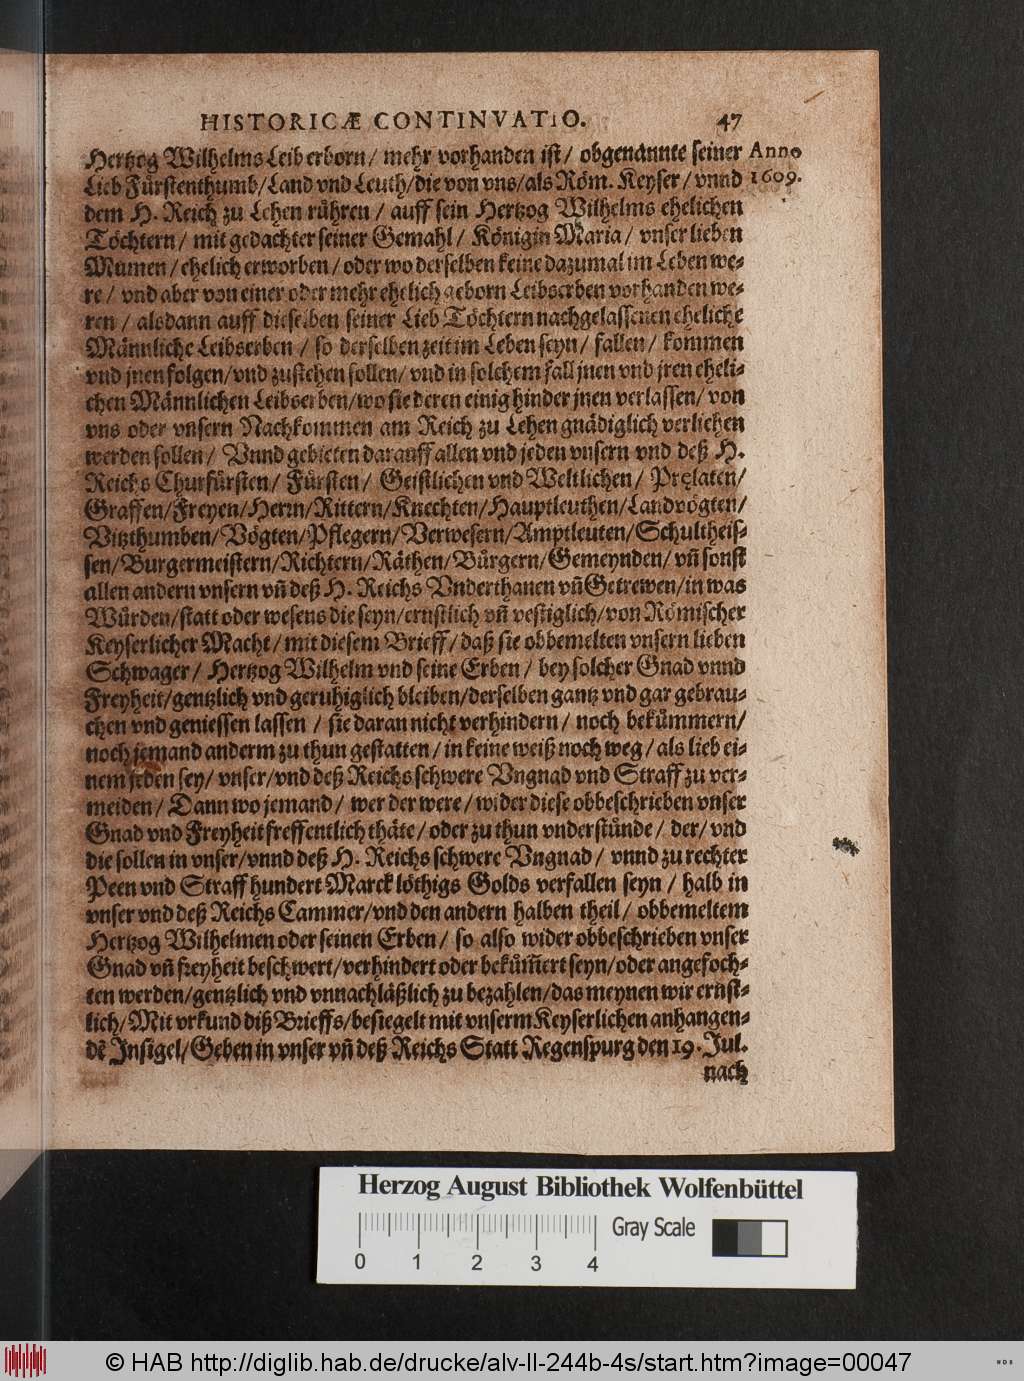 HISTORICÆ CONTINVATIO. 47
Hertzog Wilhelms Leib erborn/ mehr vorhanden ist/ obgenannte seiner Anno
Lieb Fürstenthumb/Land vnd Leuth/die von vns/als Röm. Keyser/ vnnd 1609.
dem H. Reich zu Lehen rühren / auff sein Hertzog Wilhelms ehelichen
Töchtern/ mit gedachter seiner Gemahl/ Königin Maria/ vnser lieben
Mumen/ ehelich erworben/ oder wo derselben keine dazumal im Leben we-
re/ vnd aber von einer oder mehr ehelich geborn Leibserben vorhanden we-
ren / alsdann auff dieselben seiner Lieb Töchtern nachgelassenen eheliche
Männliche Leibserben / so derselben zeit im Leben seyn/ fallen/ kommen
vnd jnen folgen/vnd zustehen sollen/ vnd in solchem fall jnen vnd jren eheli-
chen Männlichen Leibserben/wo sie deren einig hinder jnen verlassen/ von
vns oder vnsern Nachkommen am Reich zu Lehen gnädiglich verliehen
werden sollen/ Vnnd gebieten darauff allen vnd jeden vnsern vnd deß H.
Reichs Churfürsten/ Fürsten/ Geistlichen vnd Weltlichen/ Pręlaten/
Graffen/Freyen/Herrn/Rittern/Knechten/Hauptleuthen/Landvögten/
Vitzthumben/Vögten/Pflegern/Verwesern/Amptleuten/Schultheis-
sen/Burgermeistern/Richtern/Räthen/Bürgern/Gemeynden/ vñ sonst
allen andern vnsern vñ deß H. Reichs Vnderthanen vñ Getrewen/in was
Würden/statt oder wesens die seyn/ernstlich vñ vestiglich/von Römischer
Keyserlicher Macht/ mit diesem Brieff/ daß sie obbemelten vnsern lieben
Schwager/ Hertzog Wilhelm vnd seine Erben/ bey solcher Gnad vnnd
Freyheit/gentzlich vnd geruhiglich bleiben/derselben gantz vnd gar gebrau-
chen vnd geniessen lassen / sie daran nicht verhindern/ noch bekümmern/
noch jemand anderm zu thun gestatten/ in keine weiß noch weg/ als lieb ei-
nem jeden sey/ vnser/vnd deß Reichs schwere Vngnad vnd Straff zu ver-
meiden/ Dann wo jemand/ wer der were/ wider diese obbeschrieben vnser
Gnad vnd Freyheit freffentlich thäte/ oder zu thun vnderstünde/ der/ vnd
die sollen in vnser/vnnd deß H. Reichs schwere Vngnad/ vnnd zu rechter
Peen vnd Straff hundert Marck löthigs Golds verfallen seyn / halb in
vnser vnd deß Reichs Cammer/vnd den andern halben theil/ obbemeltem
Hertzog Wilhelmen oder seinen Erben/ so also wider obbeschrieben vnser
Gnad vñ freyheit beschwert/verhindert oder bekümert seyn/oder angefoch-
ten werden/gentzlich vnd vnnachläßlich zu bezahlen/das meynen wir ernst-
lich/ Mit vrkund diß Brieffs/besiegelt mit vnserm Keyserlichen anhangen-
dẽ Insigel/Geben in vnser vñ deß Reichs Statt Regenspurg den 19. Jul.
nach
Herzog August Bibliothek Wolfenbüttel
Gray Scale
0 1 2 3 4
© HAB http://diglib.hab.de/drucke/alv-ll-244b-4s/start.htm?image=00047